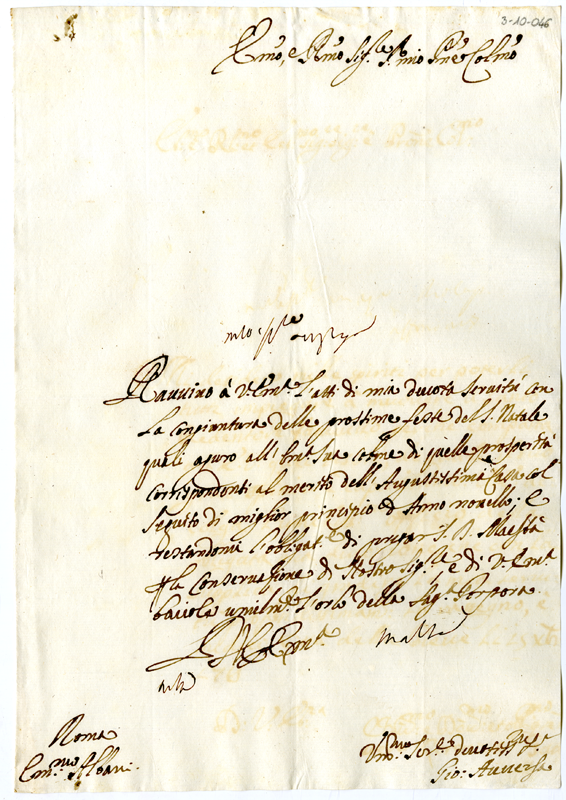 3-10-046
Emo, e Rmo Sig.re Sr. mio Prne Colmo
Ravvivo à V. Emza. l'atti di mia devota servitù con
la congiuntura delle prossime feste del S. Natale
quali aguro all'Emza Sua colme di quelle prosperità
corrispondenti al merito dell'Augustissima Casa col
seguito di miglior principio d'Anno novello; e
restandomi l'obbligat.e di pregar S. D. Maestà
p la conservazione di Nostro Sig.re e di V. Emza.
baciole umilmte l'orlo della Sag.a Porpora.
Di V. Emza.
Malta
Roma
Em.mo Albani.
Um.mo Ser.e devotiss.mo
Gio: Anversa